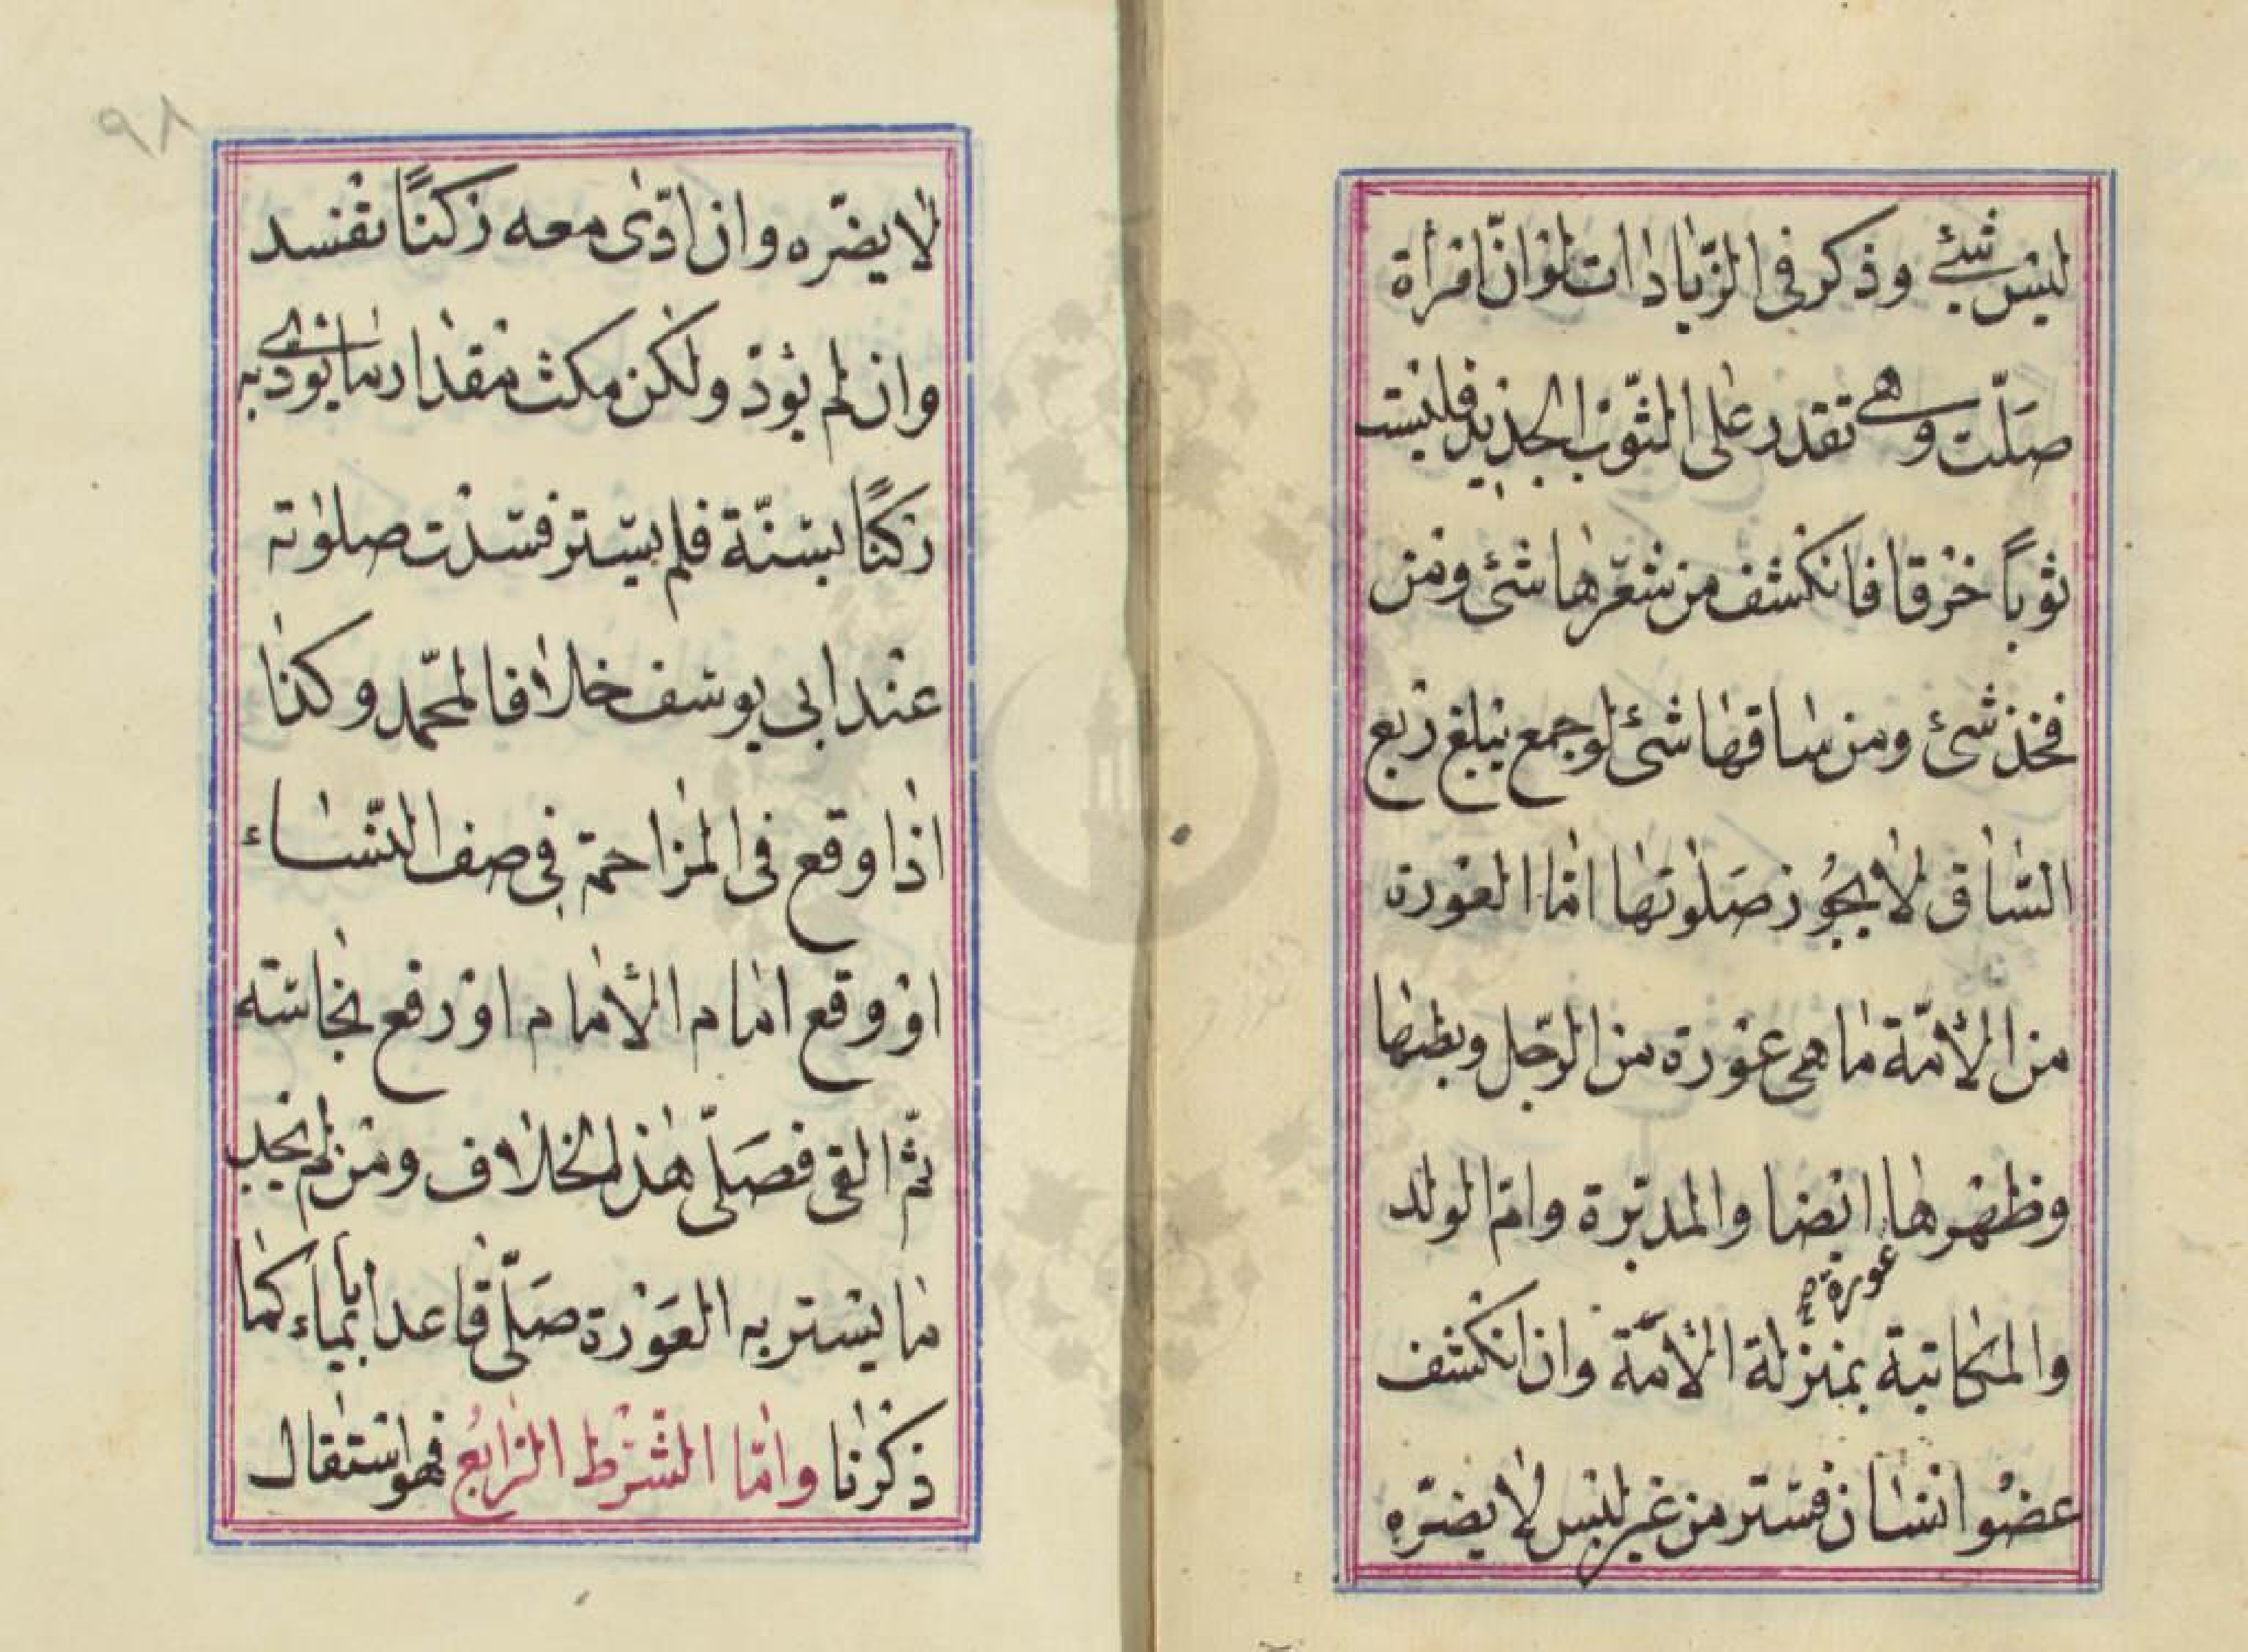 ليس شئ وذكر فى الزيادات لو انّ امرأة
صلّت وهى تقدر على الثّوب الجديد فلبست
ثوباً خرقا فانكشف من شعرها شئ ومن
فخذ شئ ومن ساقها شئ لو جمع يبلغ ربع
السّاق لا يجوز صلوتها امّا العورة
من الأمّة ما هى عورة من الرّجل وبطنها
وظهرها ايضا والمدبّرة وامّ الولد
عورة صح
والمكاتبة بمنزلة الأمّة وان انكشف
عضو انسان فستر من غير لبس لا يضرّه
٩٨
لا يضرّه وان ادّى معه ركنًا تفسد
وان لم يؤد ولكن مكث مقدار ما يؤدى به
ركنًا بسنّة فلم يستتر فسدت صلوته
عند ابى يوسف خلافا لمحمّد وكذا
اذا وقع فى المزاحمة فى صف النّساء
او وقع امام الأمام او رفع نجاسته
ثمّ القى فصلّى هذا الخلاف ومن لم يجد
ما يستر به العورة صلّى قاعدا بأيماء كما
ذكرنا وامّا الشّرط الرّابع فهو استقبال